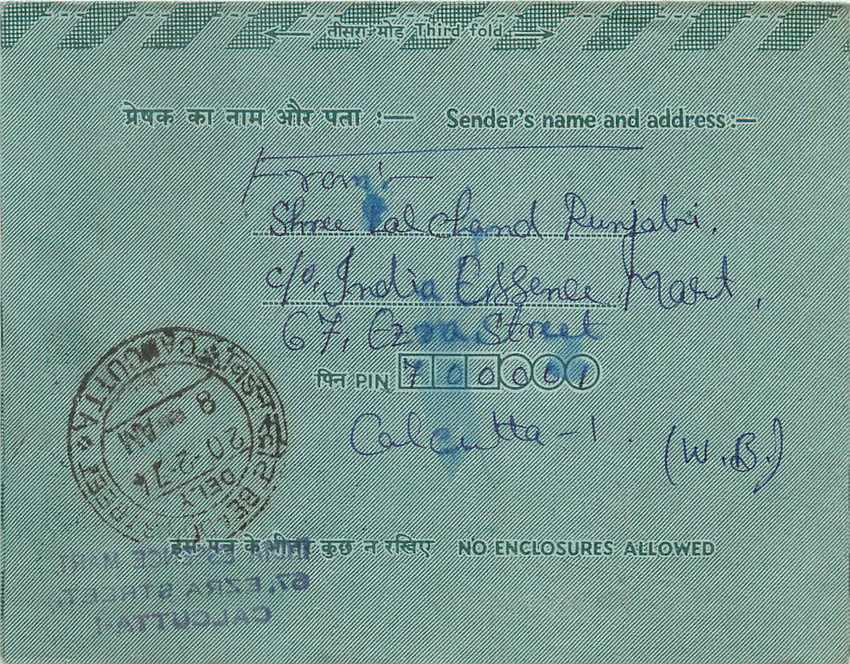 तीसरा मोड़ Third fold
प्रेषक का नाम और पता :— Sender's name and address:—
From:-
Shree Lal Chand Punjabi.
c/o. India Essence Mart,
67, Ezra Street
पिन PIN 700001
Calcutta-1. (W.B.)
CALCUTTA
8 AM
20-2-74
DELY
इस पत्र के भीतर कुछ न रखिए NO ENCLOSURES ALLOWED
ESSENCE MART
67, EZRA STREET,
CALCUTTA-1